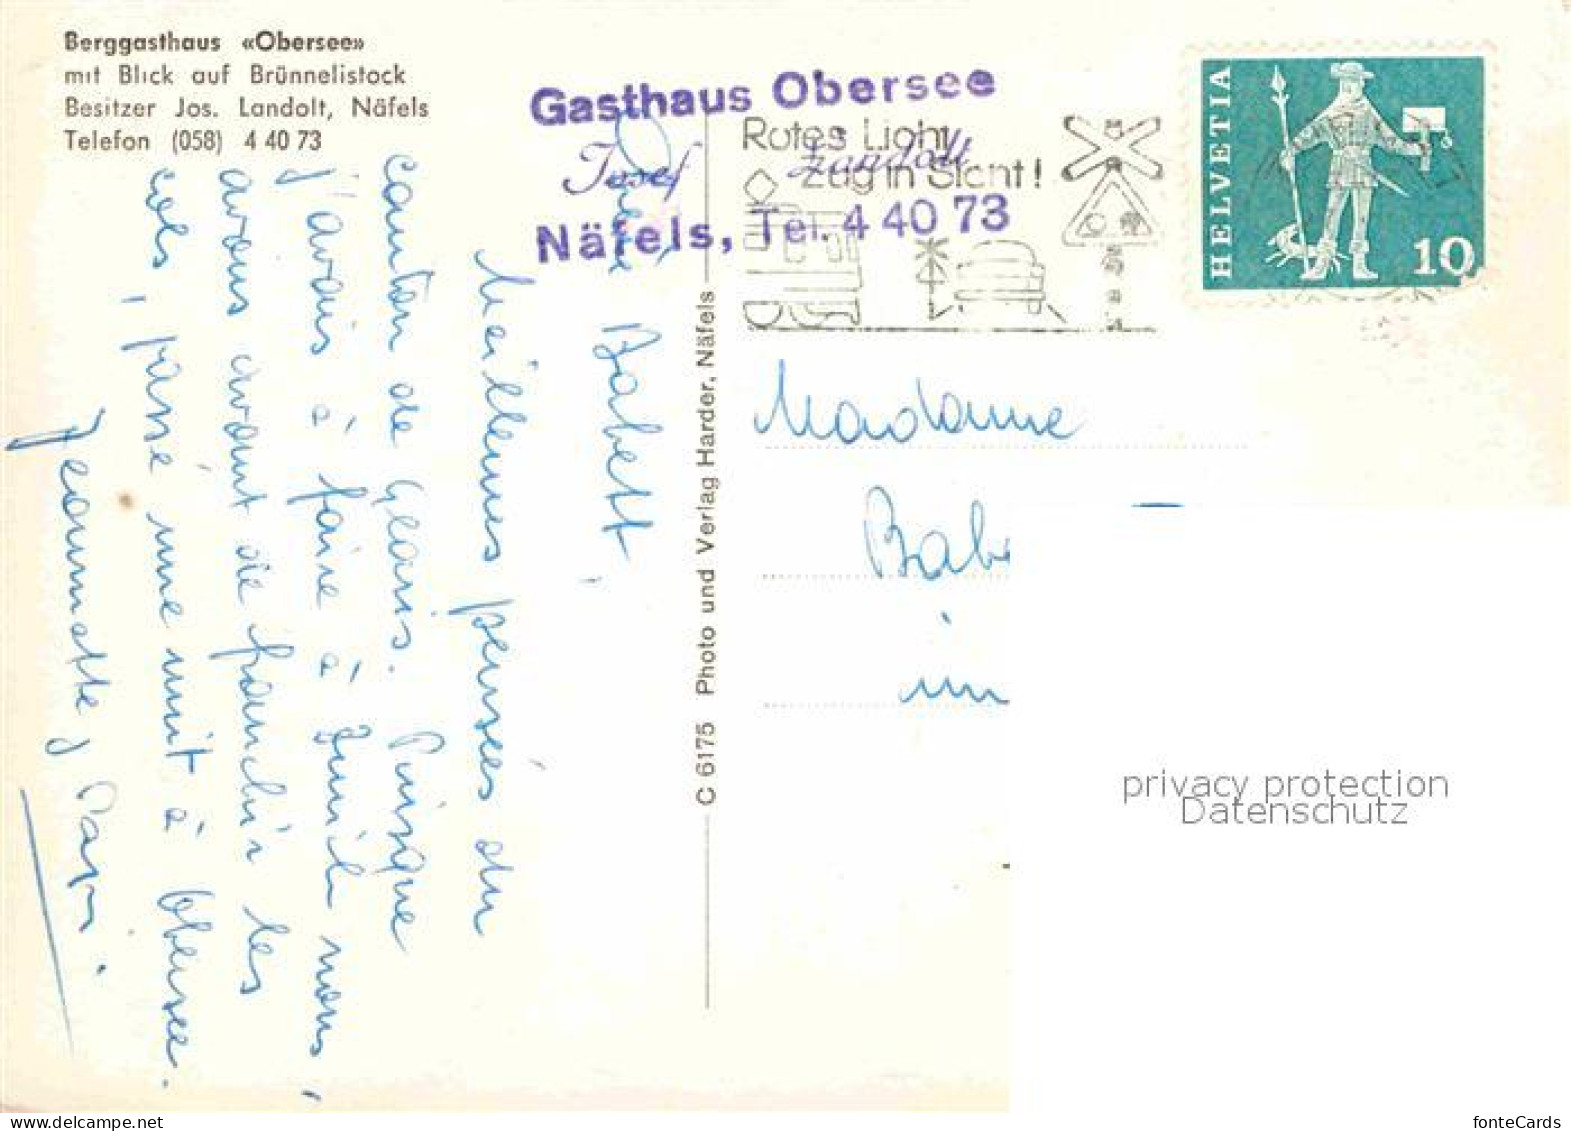 Berggasthaus «Obersee»
mit Blick auf Brünnelistock
Besitzer Jos. Landolt, Näfels
Telefon (058) 4 40 73
Gasthaus Obersee
Josef Landolt
Näfels, Tel. 4 40 73
Rotes Licht
Zug in Sicht!
HELVETIA
10
Babett,
Meilleures pensées du
canton de Glaris. Puisque
j'avais à faire à Zurich nous,
avons avant de franchir les
cols, passé une nuit à Obersee.
Jeannette, Papi.
C 6175 Photo und Verlag Harder, Näfels
Madame
Bab
im
privacy protection
Datenschutz
fonteCards